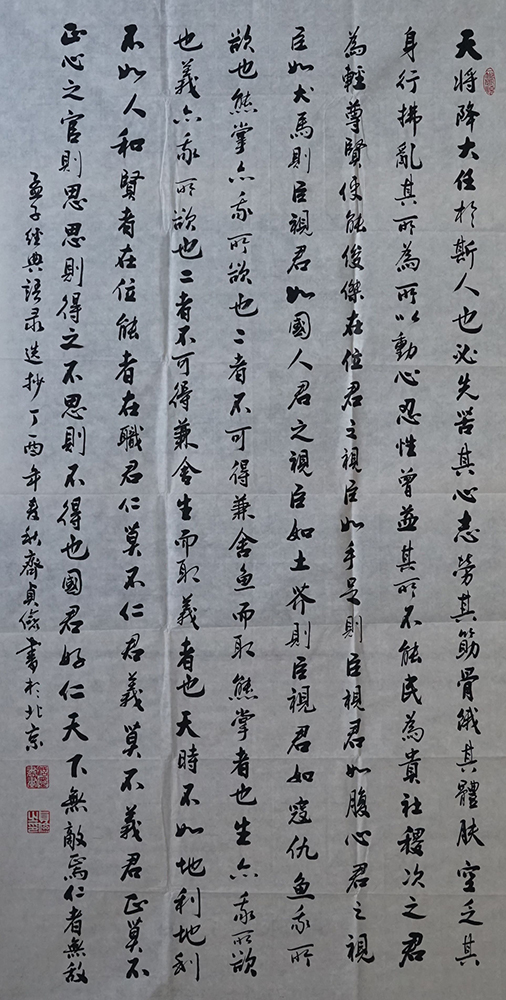 天將降大任於斯人也必先苦其心志勞其筋骨餓其體膚空乏其
身行拂亂其所為所以動心忍性曾益其所不能民為貴社稷次之君
為輕尊賢使能俊傑在位君之視臣如手足則臣視君如腹心君之視
臣如犬馬則臣視君如國人君之視臣如土芥則臣視君如寇仇魚我所
欲也熊掌亦我所欲也二者不可得兼舍魚而取熊掌者也生亦我所欲
也義亦我所欲也二者不可得兼舍生而取義者也天時不如地利地利
不如人和賢者在位能者在職君仁莫不仁君義莫不義君正莫不
正心之官則思思則得之不思則不得也國君好仁天下無敵焉仁者無敵
孟子經典語录选抄丁酉年春秋齊貞書於北京